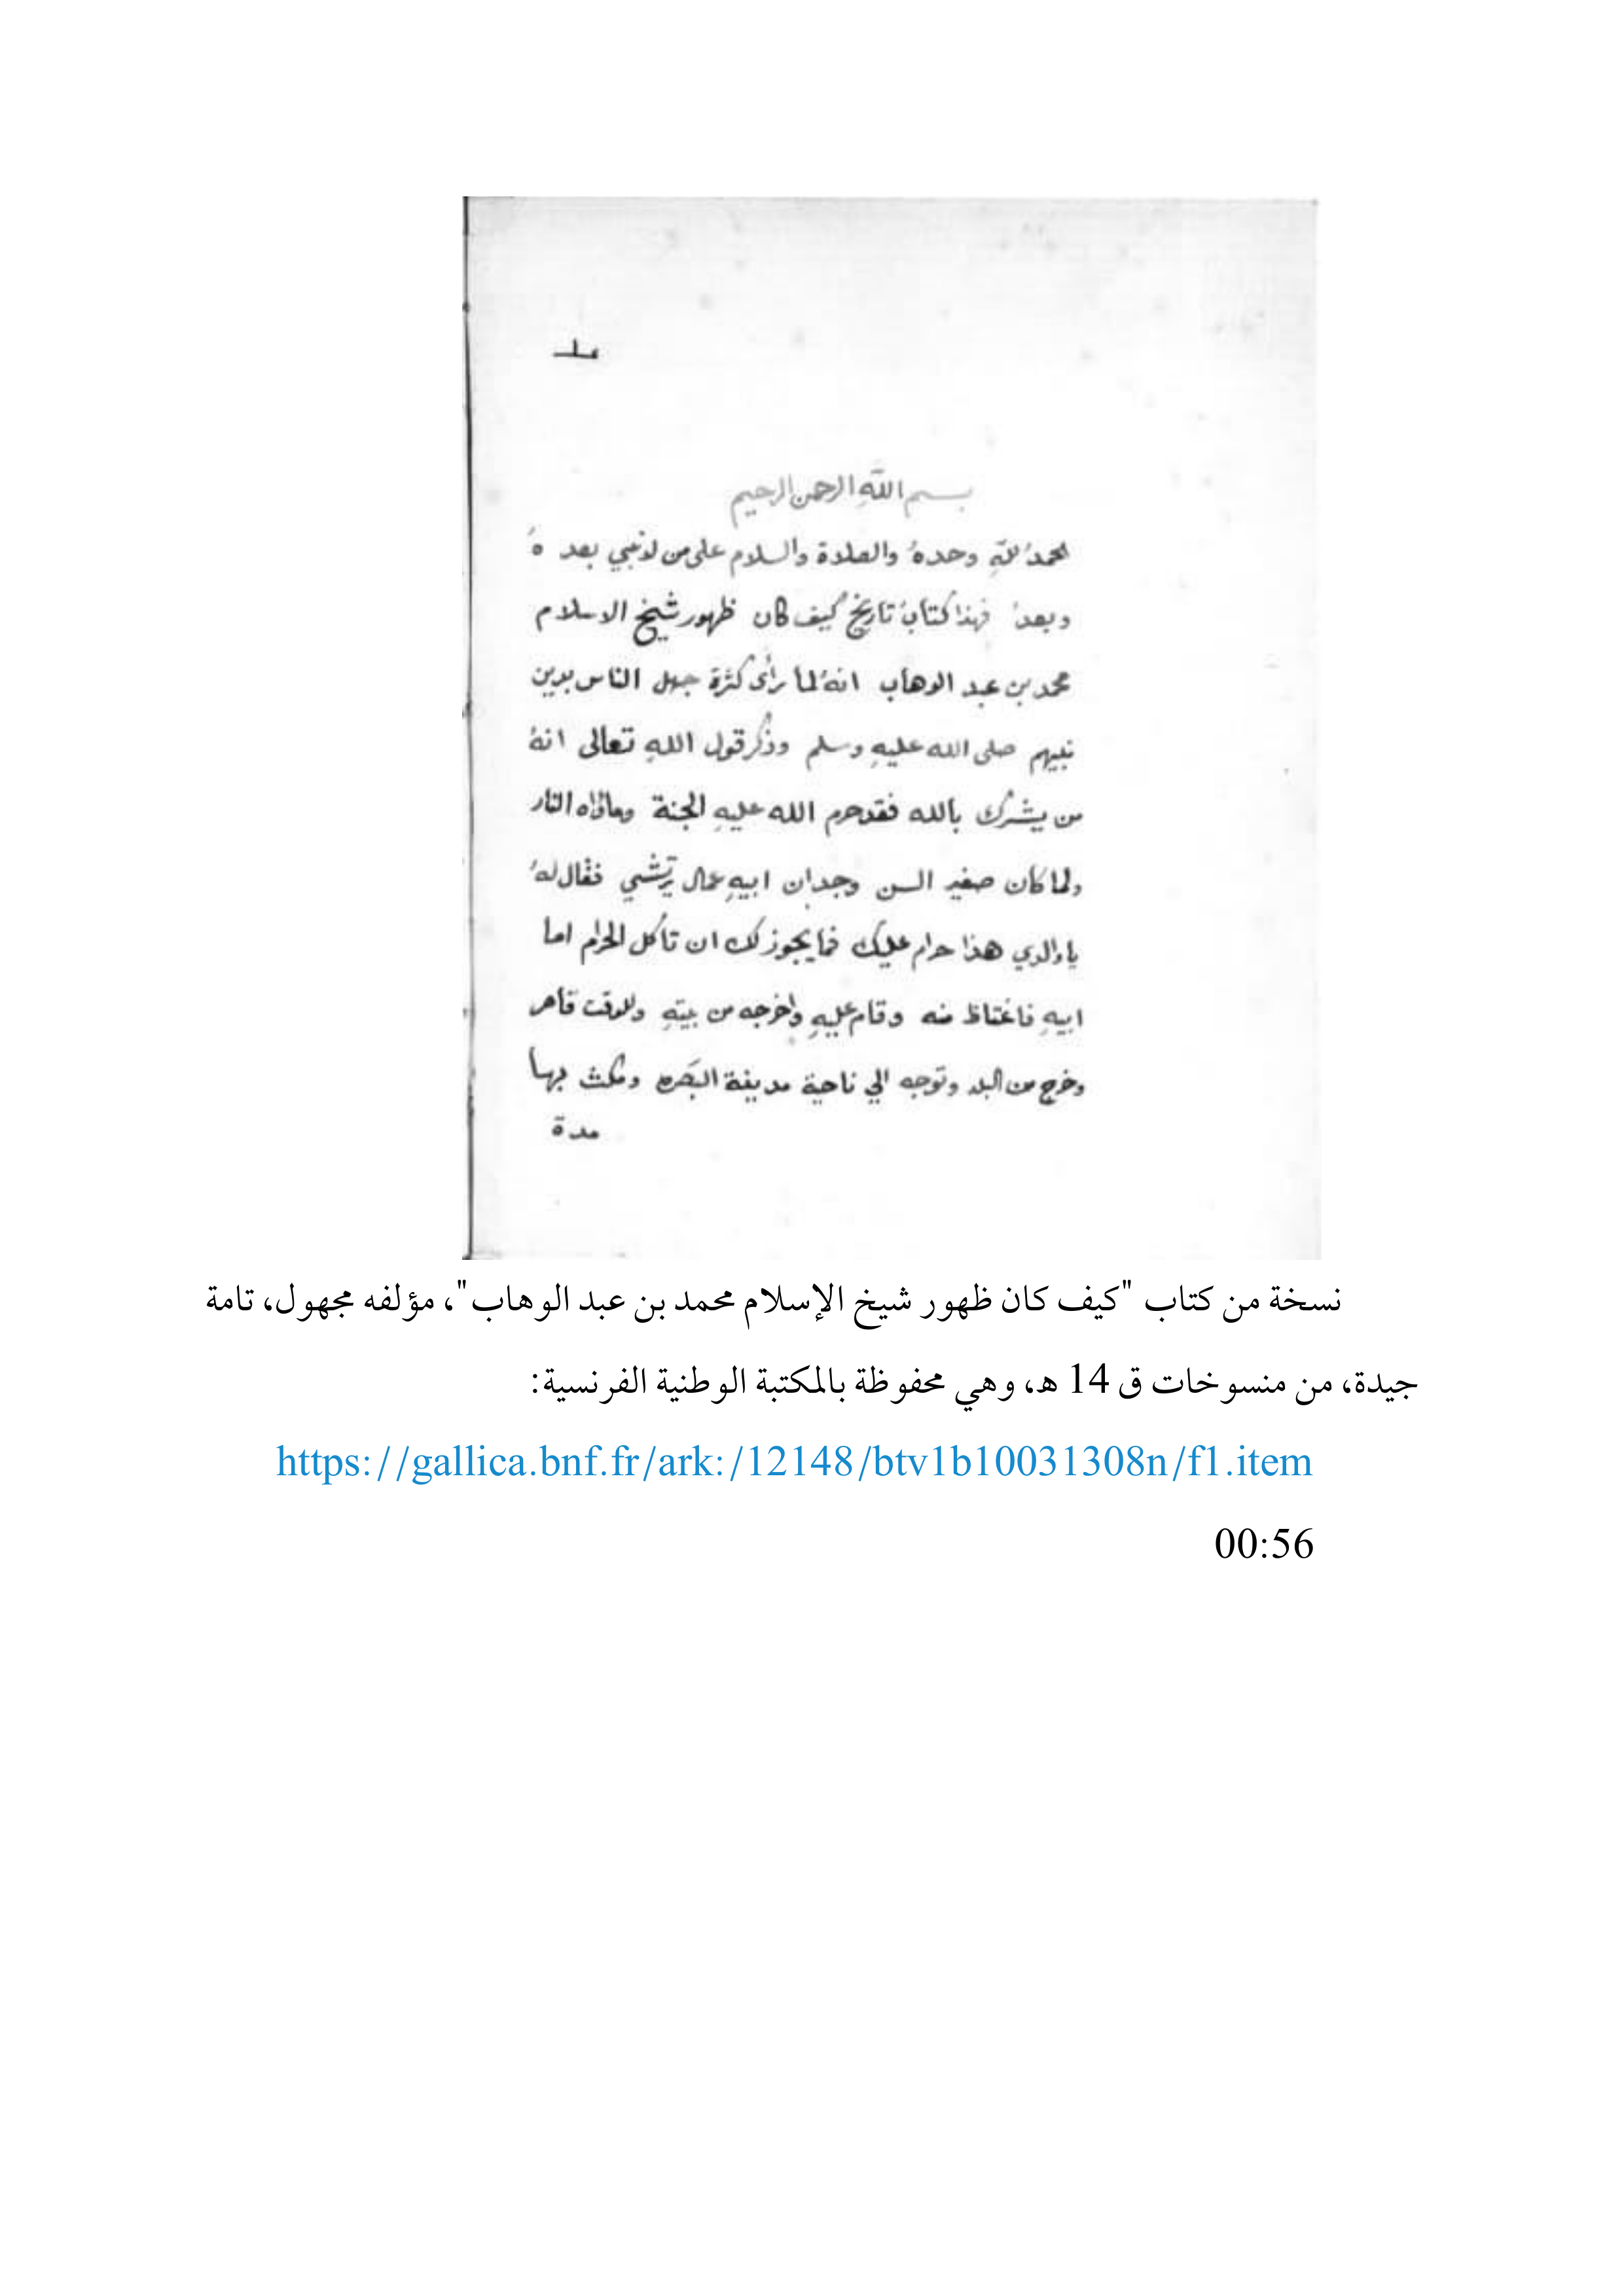 بسم اللهِ الرحمن الرحيم
الحمدُ للهِ وحدهُ والصلاة والسلام على من لا نبي بعدهُ
وبعدُ فهذا كتابُ تاريخ كيف كان ظهور شيخ الاسلام
محمد بن عبد الوهاب انهُ لما رأى كثرة جهل الناس بدين
نبيهم صلى الله عليهِ وسلم وذكر قول اللهِ تعالى انهُ
من يشرك بالله فقد حرم الله عليهِ الجنة ومأواه النار
ولما كان صغير السن وجد ان ابيهِ عمال يرتشي فقال لهُ
يا والدي هذا حرام عليك فما يجوز لك ان تأكل الحرام اما
ابيهِ فاغتاظ منه وقام عليهِ واخرجه من بيتهِ وللوقت قام
وخرج من البلد وتوجه الي ناحية مدينة البصره ومكث بها
مدة
نسخة من كتاب "كيف كان ظهور شيخ الإسلام محمد بن عبد الوهاب"، مؤلفه مجهول، تامة
جيدة، من منسوخات ق 14 هـ، وهي محفوظة بالمكتبة الوطنية الفرنسية:
https://gallica.bnf.fr/ark:/12148/btv1b10031308n/f1.item
00:56